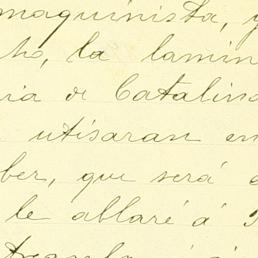 maquinista, y
la lamin
ria de Catalina
utisaran en
ber, que será
le ablaré á